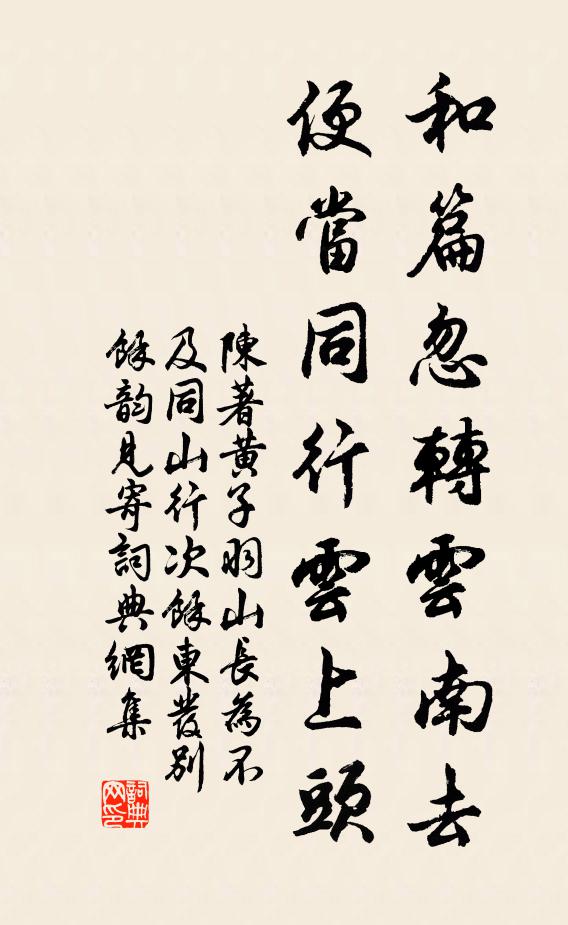 和篇忽轉雲南去
便當同行雲上頭
陳著黄子羽山長為不
及同山行次餘東發别
餘韵見寄詞典網集
詞典网印